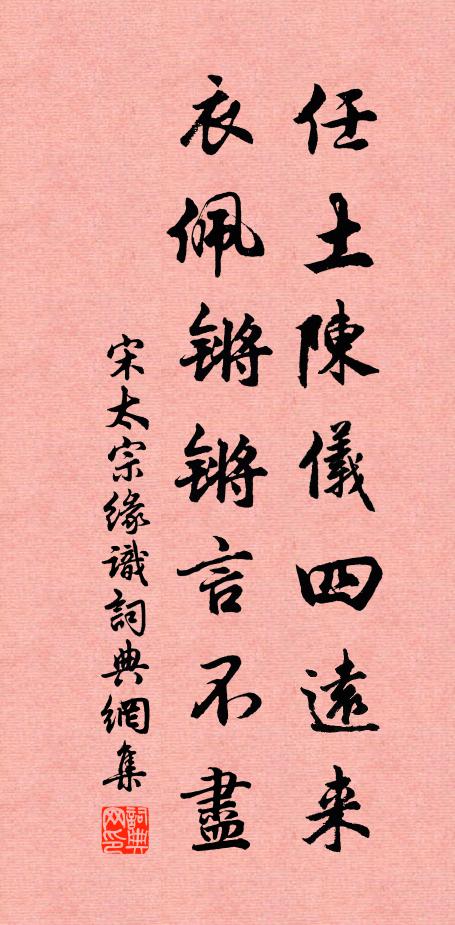 任土陳儀四遠来
衣佩鏘鏘言不盡
宋太宗緣識詞典網集
詞典网印